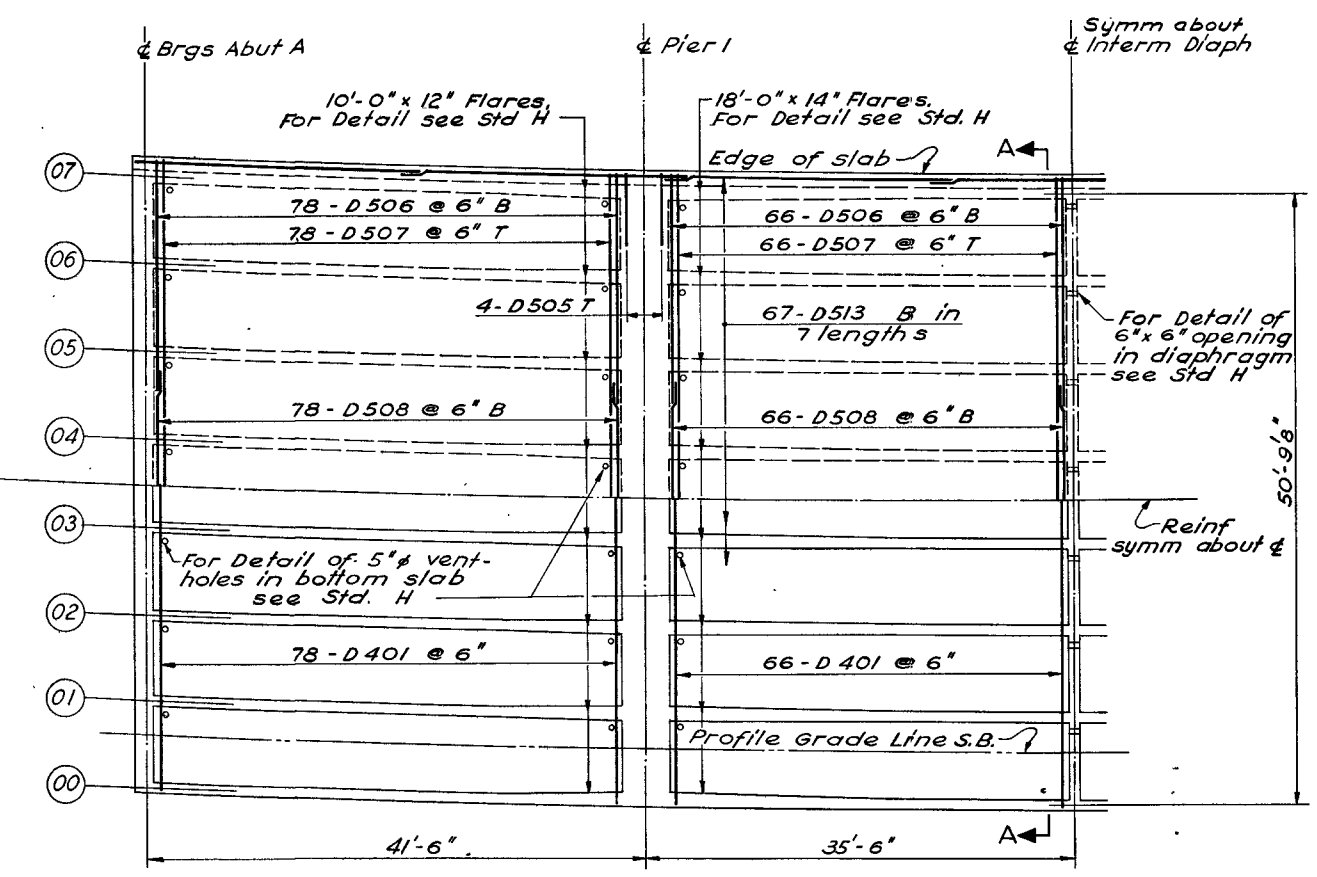 ℄ Brgs Abut A
℄ Pier 1
Symm about
℄ Interm Diaph
10'-0" x 12" Flares,
For Detail see Std H
18'-0" x 14" Flares.
For Detail see Std. H
Edge of slab
A
07
78-D506 @ 6" B
66-D506 @ 6" B
78-D507 @ 6" T
66-D507 @ 6" T
06
4-D505 T
67-D513 B in
7 lengths
For Detail of
6" x 6" opening
in diaphragm
see Std H
05
78-D508 @ 6" B
66-D508 @ 6" B
04
50'-9⅛"
03
Reinf
symm about ℄
For Detail of 5"ø vent-
holes in bottom slab
see Std. H
02
78-D401 @ 6"
66-D401 @ 6"
01
Profile Grade Line S.B.
00
A
41'-6"
35'-6"